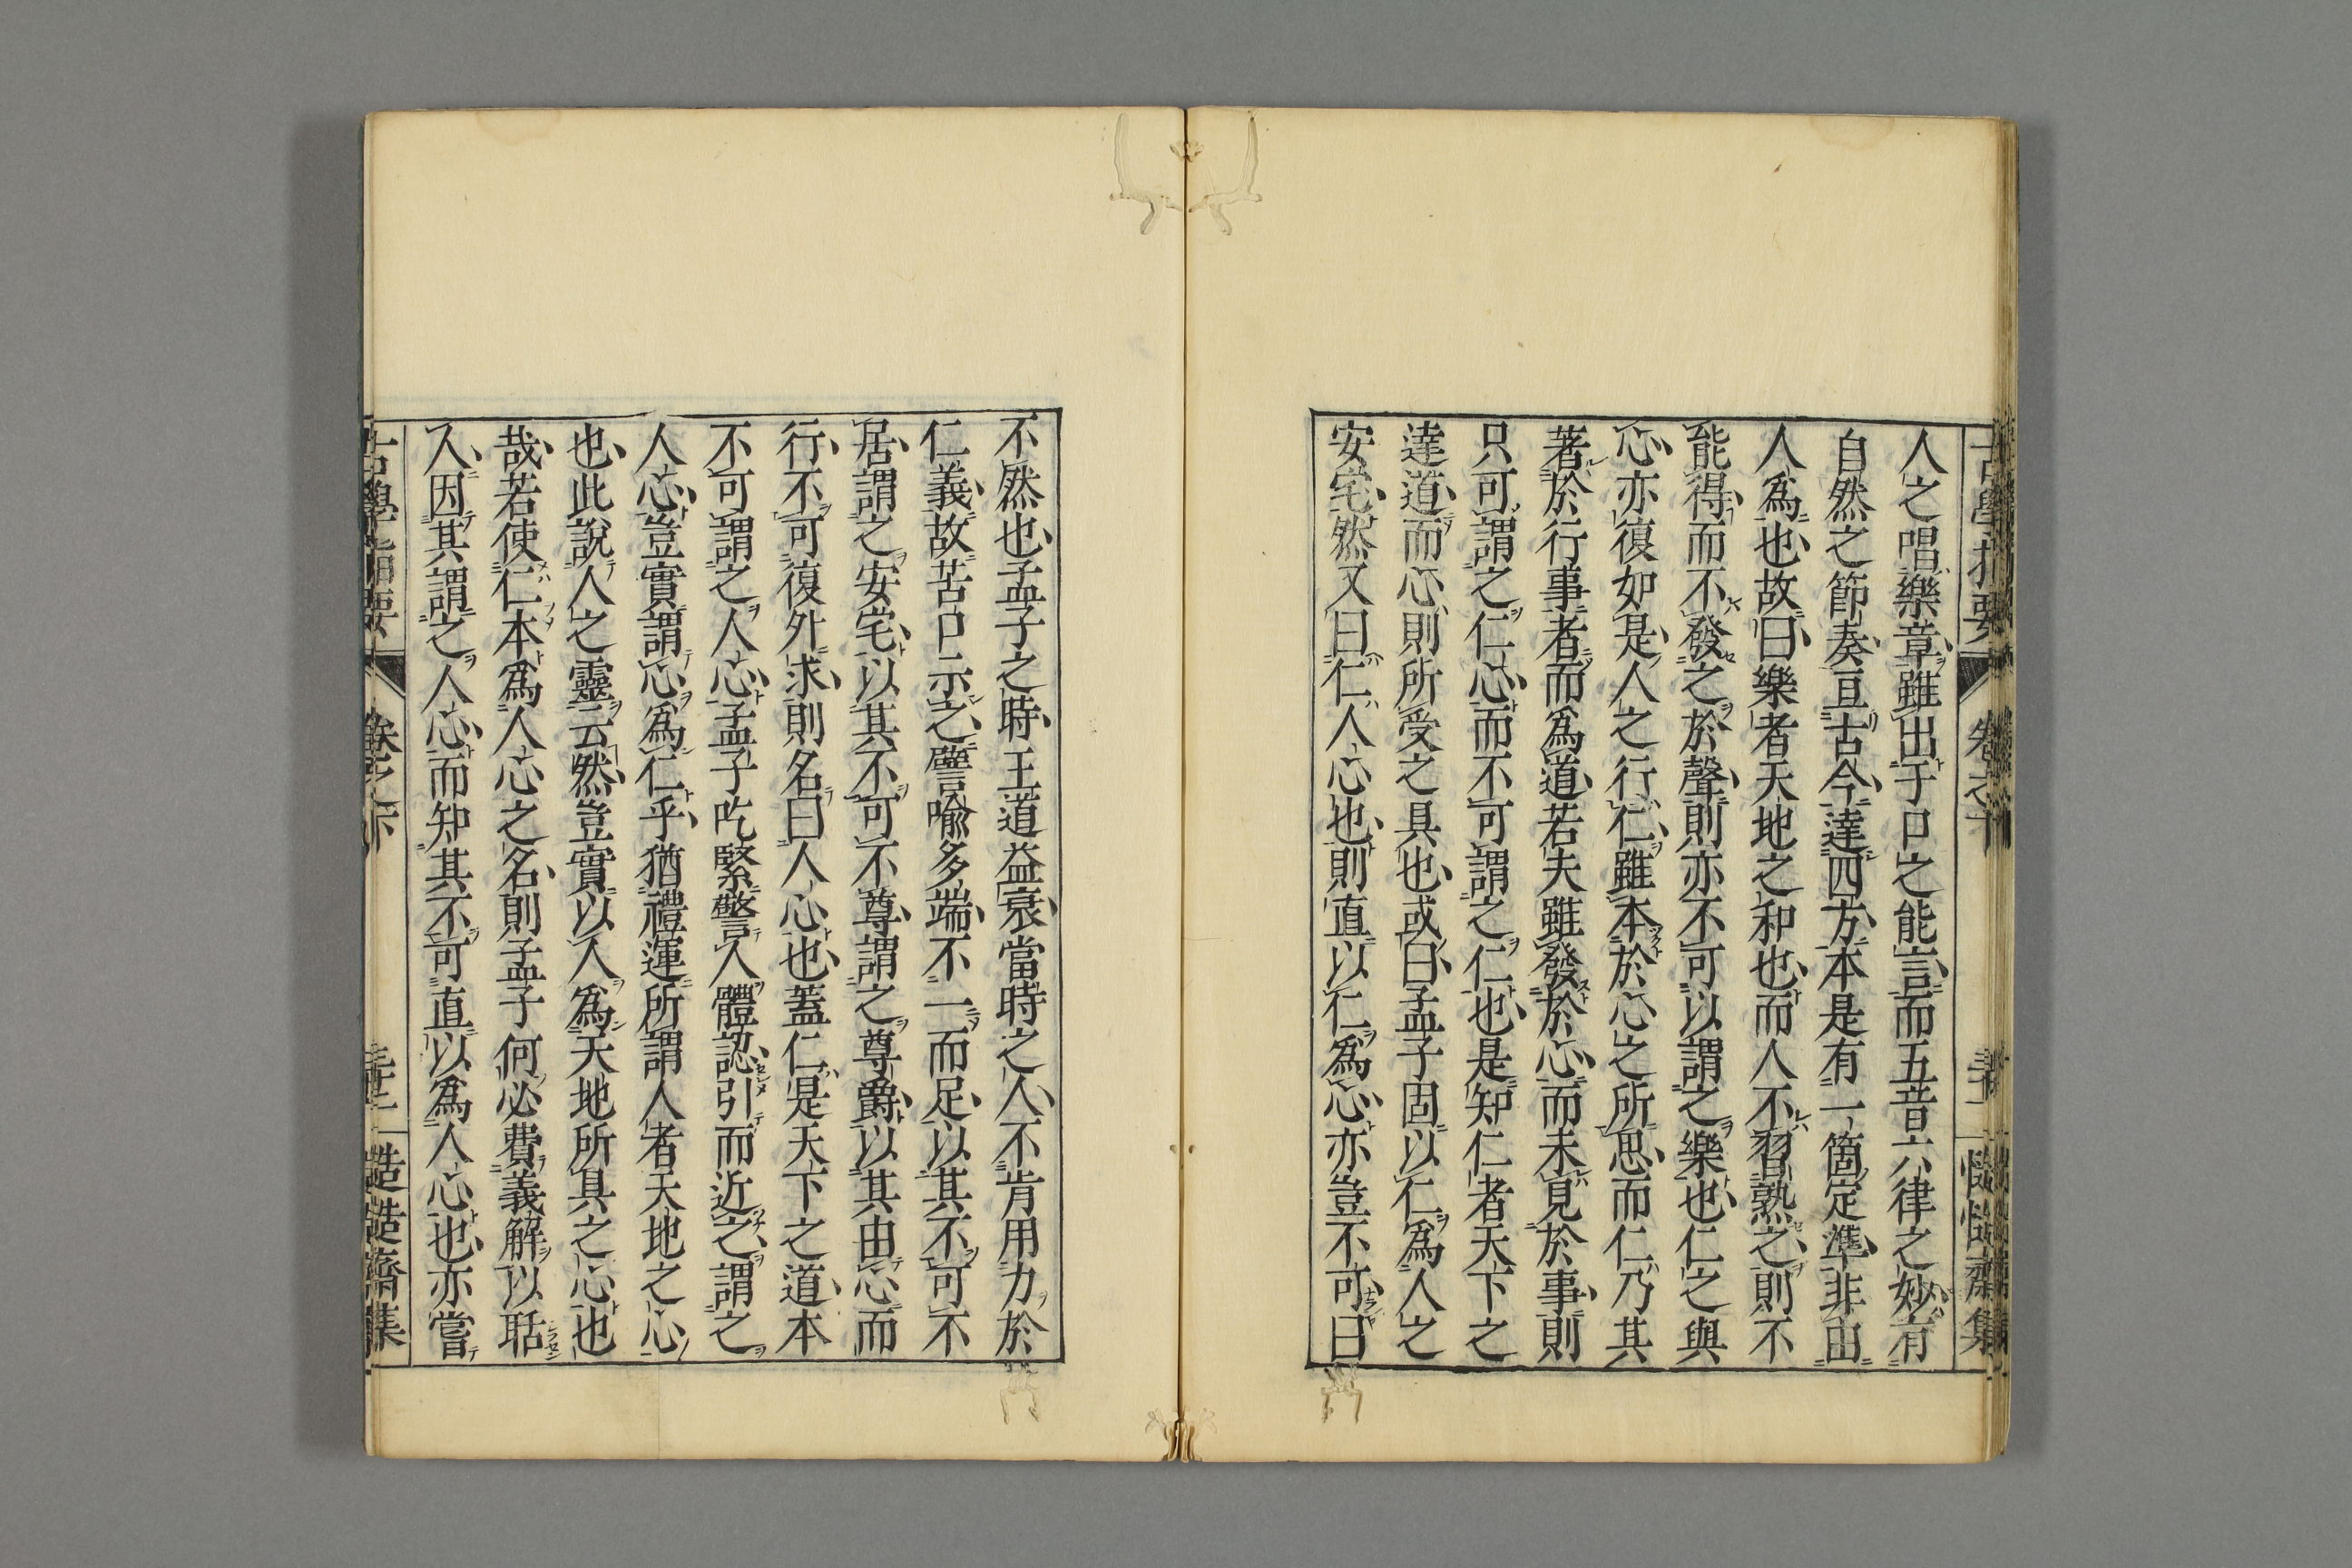 人之唱樂章雖出于口之能言而五音六律之妙有
自然之節奏亘古今達四方本是有一箇定準非由
人爲也故曰樂者天地之和也而人不習熟之則不
能得而不發之於聲則亦不可以謂之樂也仁之與
心亦復如是人之行仁雖本於心之所思而仁乃其
著於行事者而爲道若夫雖發於心而未見於事則
只可謂之仁心而不可謂之仁也是知仁者天下之
達道而心則所受之具也或曰孟子固以仁爲人之
安宅然又曰仁人心也則直以仁爲心亦豈不可曰
不然也孟子之時王道益衰當時之人不肯用力於
仁義故苦口示之譬喩多端不一而足以其不可不
居謂之安宅以其不可不尊謂之尊爵以其由心而
行不可復外求則名曰人心也蓋仁是天下之道本
不可謂之人心孟子吃緊警人體認引而近之謂之
人心豈實謂心爲仁乎猶禮運所謂人者天地之心
也此說人之靈云然豈實以人爲天地所具之心也
哉若使仁本爲人心之名則孟子何必費義解以聒
人因其謂之人心而知其不可直以爲人心也亦嘗
古學指要
卷之下